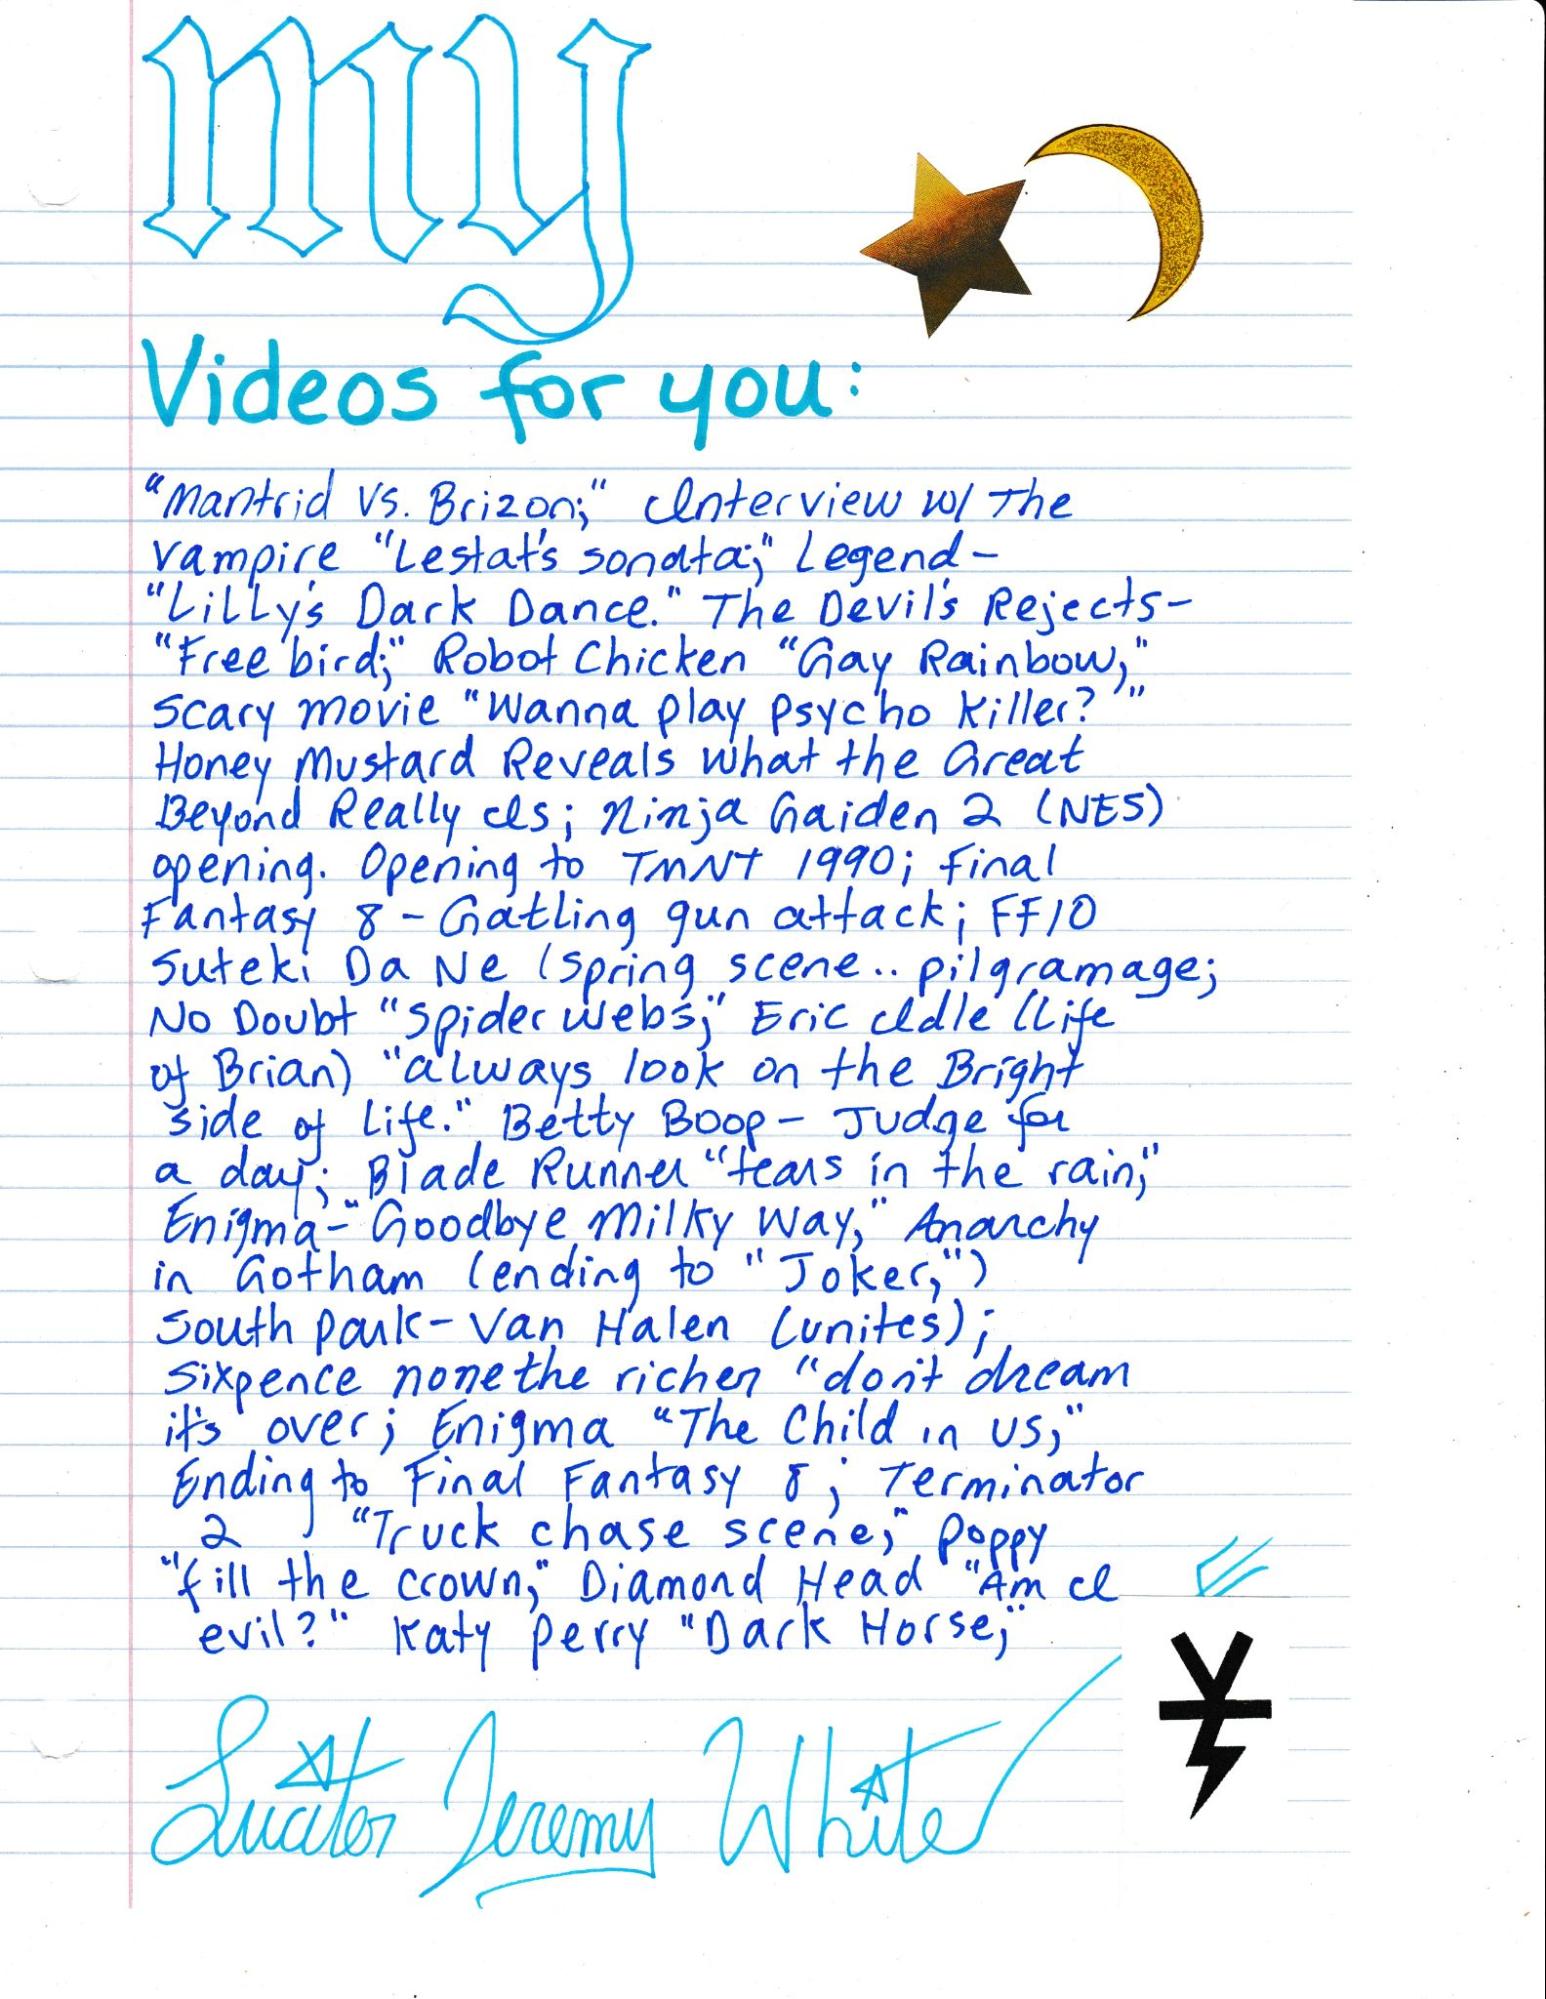 My
Videos for you:
"Mantrid vs. Brizon;" Interview w/ The
vampire "Lestat's sonata;" Legend-
"Lilly's Dark Dance." The Devil's Rejects-
"Free bird;" Robot Chicken "Gay Rainbow,"
Scary movie "Wanna play psycho killer?"
Honey Mustard Reveals what the Great
Beyond Really Is; Ninja Gaiden 2 (NES)
opening. Opening to TMNT 1990; Final
Fantasy 8 - Gatling gun attack; FF10
Suteki Da Ne (spring scene.. pilgramage;
No Doubt "Spider webs;" Eric Idle (Life
of Brian) "always look on the Bright
side of life." Betty Boop- Judge for
a day; Blade Runner "tears in the rain;"
Enigma-"Goodbye Milky Way," Anarchy
in Gotham (ending to "Joker,")
South park- Van Halen (unites);
Sixpence none the richer "don't dream
it's over; Enigma "The Child in us;"
Ending to Final Fantasy 8; Terminator
2 "Truck chase scene;" Poppy
"fill the crown;" Diamond Head "Am I
evil?" Katy Perry "Dark Horse;"
Jeremy White